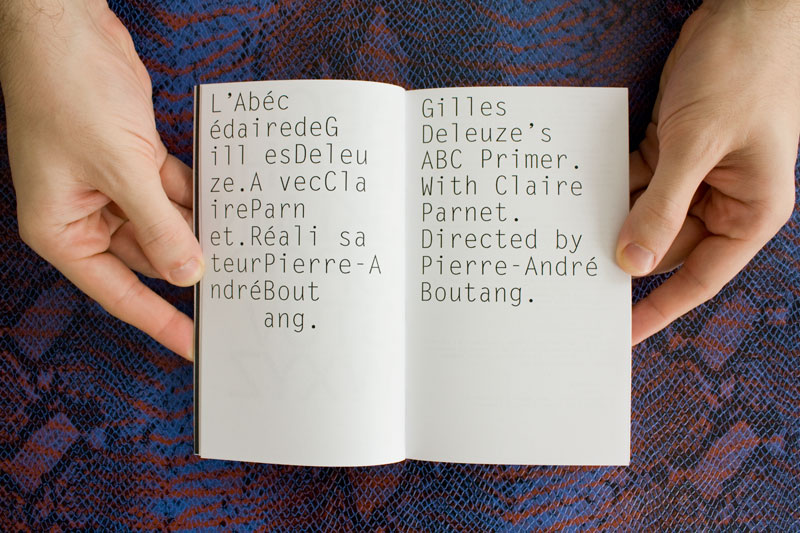 L’Abéc
édairedeG
ill esDeleu
ze.A vecCla
ireParn
et.Réali sa
teurPierre-A
ndréBout
ang.
Gilles
Deleuze’s
ABC Primer.
With Claire
Parnet.
Directed by
Pierre-André
Boutang.